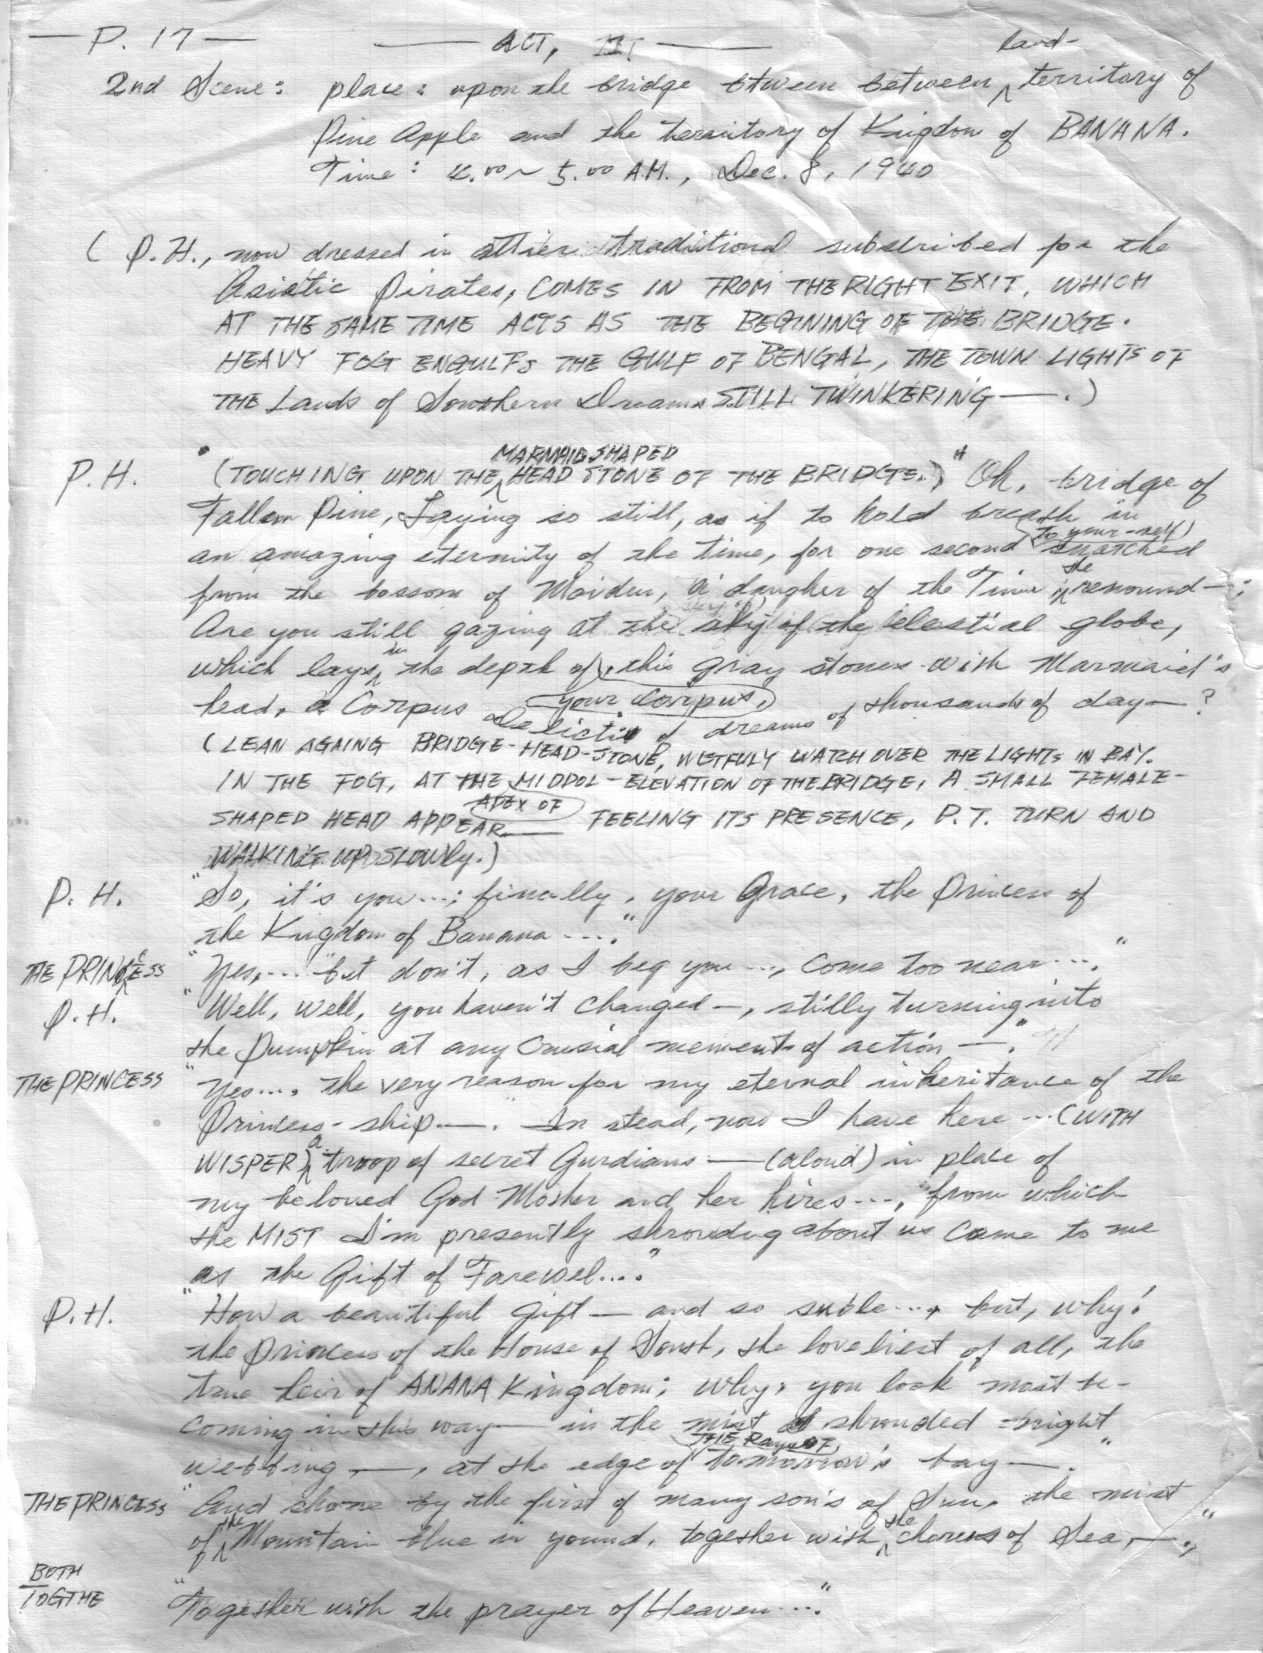 — P. 17 —
— ACT, III —
land-
2nd Scene: place: upon the bridge btween between territory of
Pine Apple and the territory of Kingdom of BANANA.
Time: 4.00 ~ 5.00 A.M., Dec. 8, 1940
( P.H., now dressed in attier traditional subscribed for the
Asiatic Pirates, COMES IN FROM THE RIGHT EXIT, WHICH
AT THE SAME TIME ACTS AS THE BEGINING OF THE BRIDGE.
HEAVY FOG ENGULFS THE GULF OF BENGAL, THE TOWN LIGHTS OF
THE Lands of Southern Dreams STILL TWINKERING —.)
MARMAID SHAPED
P.H. (TOUCHING UPON THE HEAD STONE OF THE BRIDGE.) "Oh, bridge of
Fallen Pine, Laying so still, as if to hold breath in
to your-self)
an amazing eternity of the time, for one second snatched
the
from the bossom of Maiden, a daugher of the Time renound—;
Are you still gazing at the sky of the celestial globe,
in
which lays the depth of this gray stones with Marmaid's
your corpus,
head, a Corpus Delicti of dreams of thousands of day—?
(LEAN AGAING BRIDGE-HEAD-STONE, WISTFULY WATCH OVER THE LIGHTS IN BAY.
IN THE FOG, AT THE MIDDOL-ELEVATION OF THE BRIDGE, A SMALL FEMALE-
APEX OF
SHAPED HEAD APPEAR— FEELING ITS PRESENCE, P.T. TURN AND
WALKING UP SLOWLY.)
P.H. "So, it's you...; finally, your Grace, the Princess of
the Kingdom of Banana ...."
THE PRINCESS "Yes,... but don't, as I beg you..., come too near...."
P.H. "Well, well, you haven't changed—, stilly turning into
the Pumpkin at any Crusial mements of action —."
THE PRINCESS "Yes..., the very reason for my eternal inheritance of the
Princess-ship —. In stead, now I have here ... (WITH
a
WISPER) troop of secret Gurdians — (aloud) in place of
my beloved God Mother and her hires..., from which
the MIST I'm presently shrouding about us came to me
as the Gift of Farewel...."
P.H. "How a beautiful gift — and so suble..., but, why!
the Princess of the House of, the loveliest of all, the
true heir of ANANA Kingdom; Why, you look most be-
coming in this way— in the mist shrouded -bright
THE Rays OF
webbing —, at the edge of tomorrow's bay —."
THE PRINCESS "And shone by the first of many son's of Sun, the mist
the the
of Mountain blue in yound, together with chorus of Sea, —,"
BOTH
TOGTHE "Together with the prayer of Heaven...."